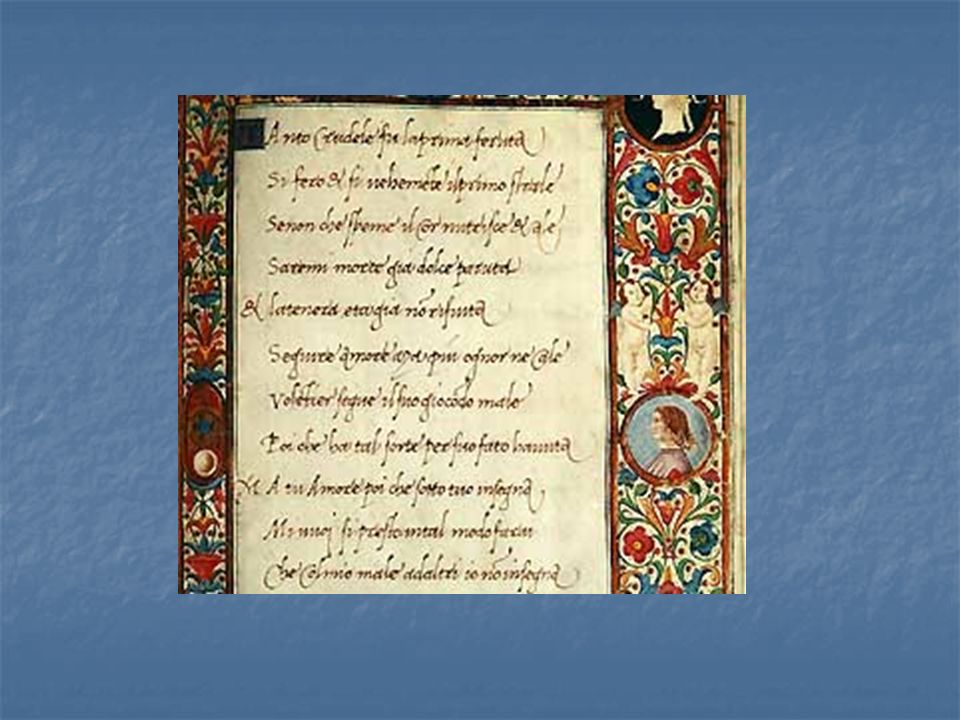 TAnto Crudele fu la prima feruta
Si fero & si uehemēte il primo strale
Se non che speme il Cor nutrisce & ale
Saremi morte gia dolce paruta
& la tenera eta gia nō rifiuta
Seguire Amore ma piu ognor ne Cale
Volētier segue il suo giocōdo male
Poi che ha tal sorte per suo fato hauuta
MA tu Amore poi che sotto tuo insegna
Mi uuoj si presto in tal modo farai
Che Col mio male ad altri io nō insegna